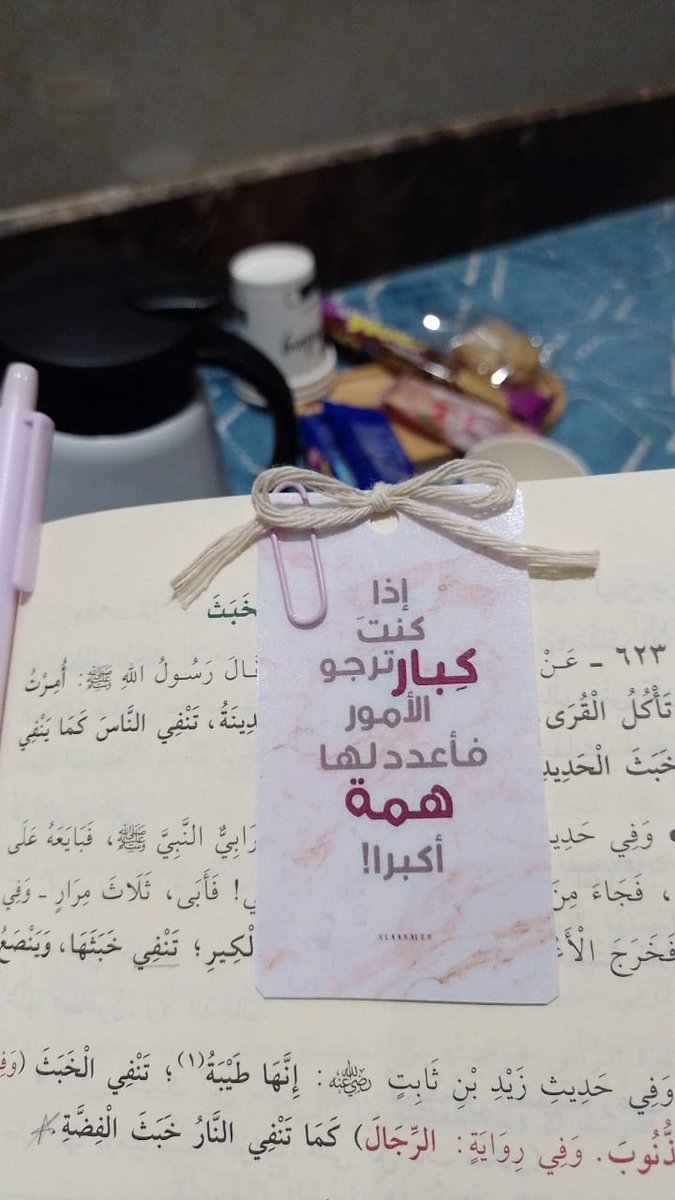 خَبَثَ
إذا
كنتَ
كِبار ترجو
الأمور
فأعدد لها
همة
أكبرا!
ALAASALEH
٦٢٣ - عَنْ قَالَ رَسُولُ اللهِ ﷺ: أُمِرْتُ
تَأْكُلُ الْقُرَى، تَنْفِي النَّاسَ كَمَا يَنْفِي
خَبَثَ الْحَدِيدِ
• وَفِي حَدِيثِ النَّبِيَّ ﷺ، فَبَايَعَهُ عَلَى
، فَجَاءَ مِنَ فَأَبَى، ثَلَاثَ مِرَارٍ - وَفِي
فَخَرَجَ كَالْكِيرِ؛ تَنْفِي خَبَثَهَا، وَيَنْصَعُ
وَفِي حَدِيثِ زَيْدِ بْنِ ثَابِتٍ رضي الله عنه: إِنَّهَا طَيْبَةُ(١)؛ تَنْفِي الْخَبَثَ (وَفِي
الذُّنُوبَ. وَفِي رِوَايَةٍ: الرِّجَالَ) كَمَا تَنْفِي النَّارُ خَبَثَ الْفِضَّةِ.